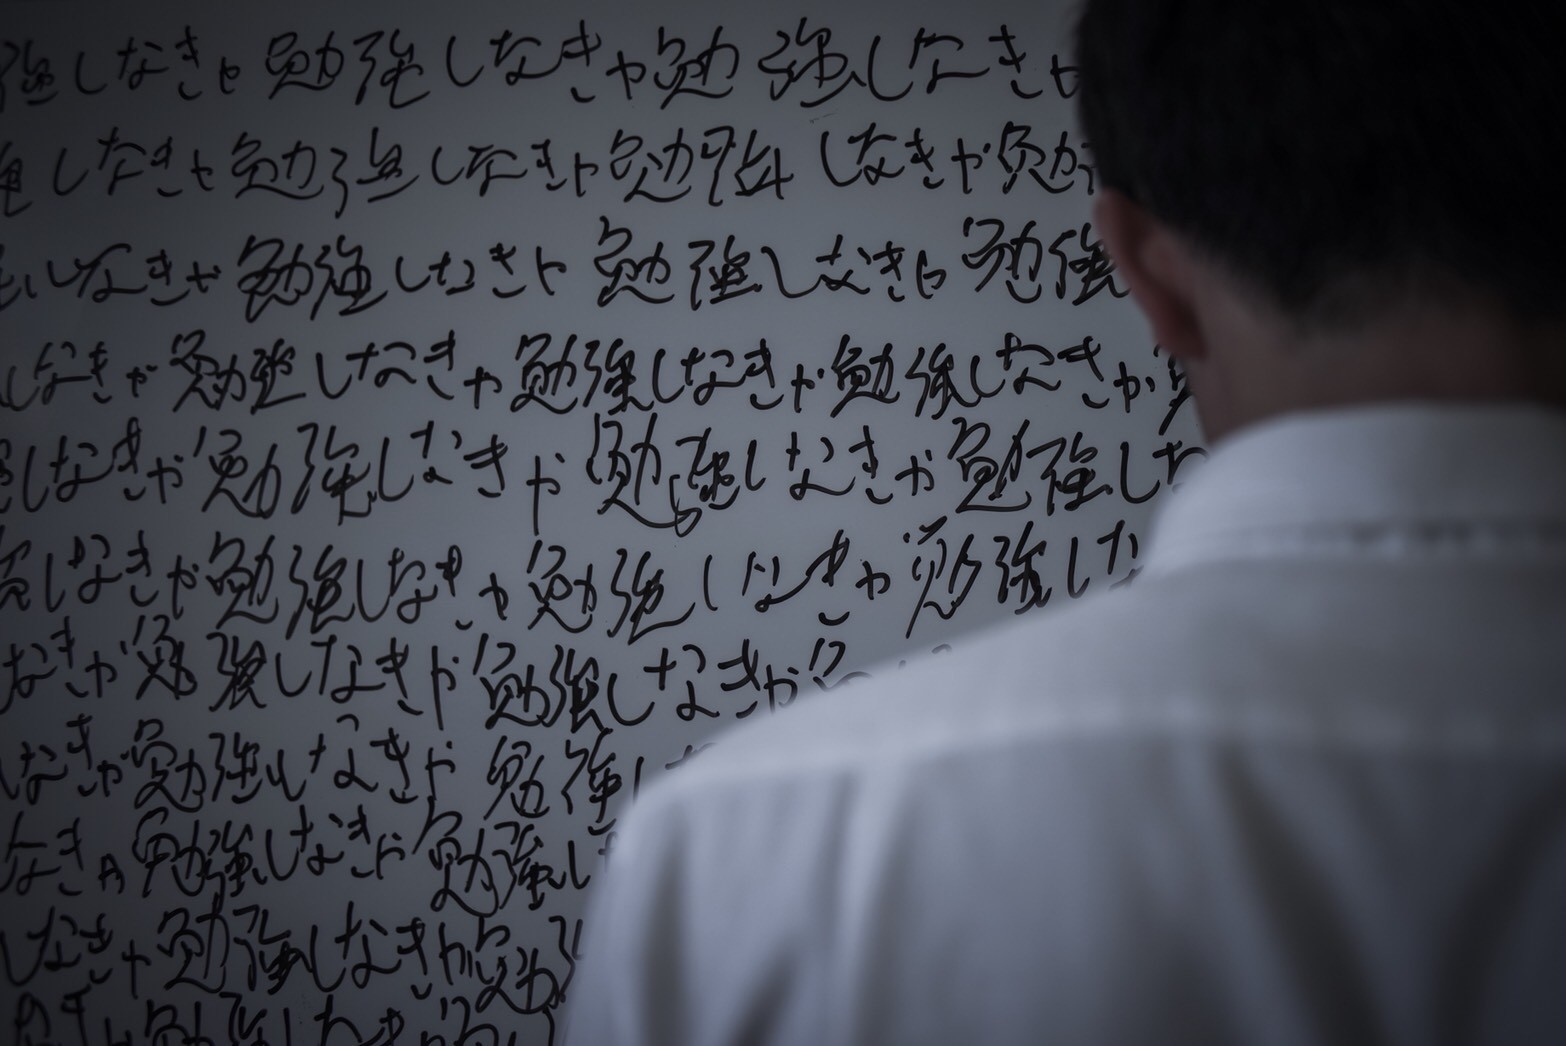 強しなきゃ勉強しなきゃ勉強しなきゃ
強しなきゃ勉強しなきゃ勉強しなきゃ勉
しなきゃ勉強しなきゃ勉強しなきゃ勉強
しなきゃ勉強しなきゃ勉強しなきゃ勉強しなきゃ
しなきゃ勉強しなきゃ勉強しなきゃ勉強しな
しなきゃ勉強しなきゃ勉強しなきゃ勉強しな
なきゃ勉強しなきゃ勉強しなきゃ
しなきゃ勉強しなきゃ勉強し
なきゃ勉強しなきゃ勉強し
しなきゃ勉強しなきゃ勉
勉強しなき